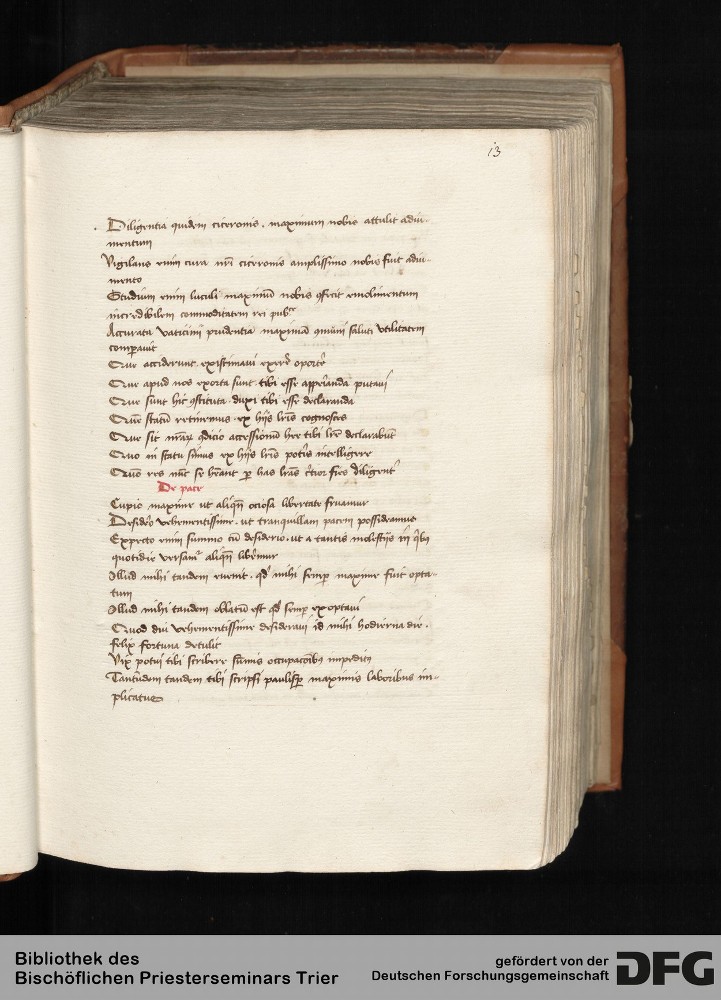 13
Diligentia quidem ciceronis . maximum nobis attulit adiu-
mentum
Vigilans enim cura nr̄i ciceronis amplissimo nobis fuit adiu-
mento
Studium enim luculi maximū nobis ꝯfecit emolimentum
incredibilem commoditatem rei pub^ce
Accurata vaticini prudentia maximā ꝯmuni saluti vtilitatem
comparauit
Que acciderunt . existimaui oportē
Que apud nos exorta sunt . tibi esse apperianda putaui
Que sunt hic ꝯstituta . duxi tibi esse declaranda
Que statū retinemus . ex hijs lr̄is cognosces
Que sit nr̄aꝝ ꝯdicio accessionū hee tibi lr̄e declarabūt
Quo in statu sumus ex hijs lr̄is potis intelligere
Quō res nūc se hēant ꝑ has lr̄as c̄tior fies diligent̄
De pace
Cupio maxime ut aliqn̄ ociosa libertate fruamur
Desidero vehementissime . ut tranquillam pacem possideamus
Expecto enim summo cū desiderio . ut a tantis molestijs in qibꝫ
quotidie versamᷣ aliqn̄ liberemur
Illud mihi tandem euenit . qd̓ mihi semꝑ maxime fuit opta-
tum
Illud mihi tandem oblatū est qd̓ semꝑ exoptaui
Quod diu vehementissime desideraui id mihi hodierna die .
felix fortuna detulit
Vix potui tibi scribere sūmis occupacōibꝫ impeditꝰ
Tantūdem tandem tibi scripsi paulisꝑ maximis laboribus im-
plicatus
Bibliothek des
Bischöflichen Priesterseminars Trier
gefördert von der
Deutschen Forschungsgemeinschaft
DFG